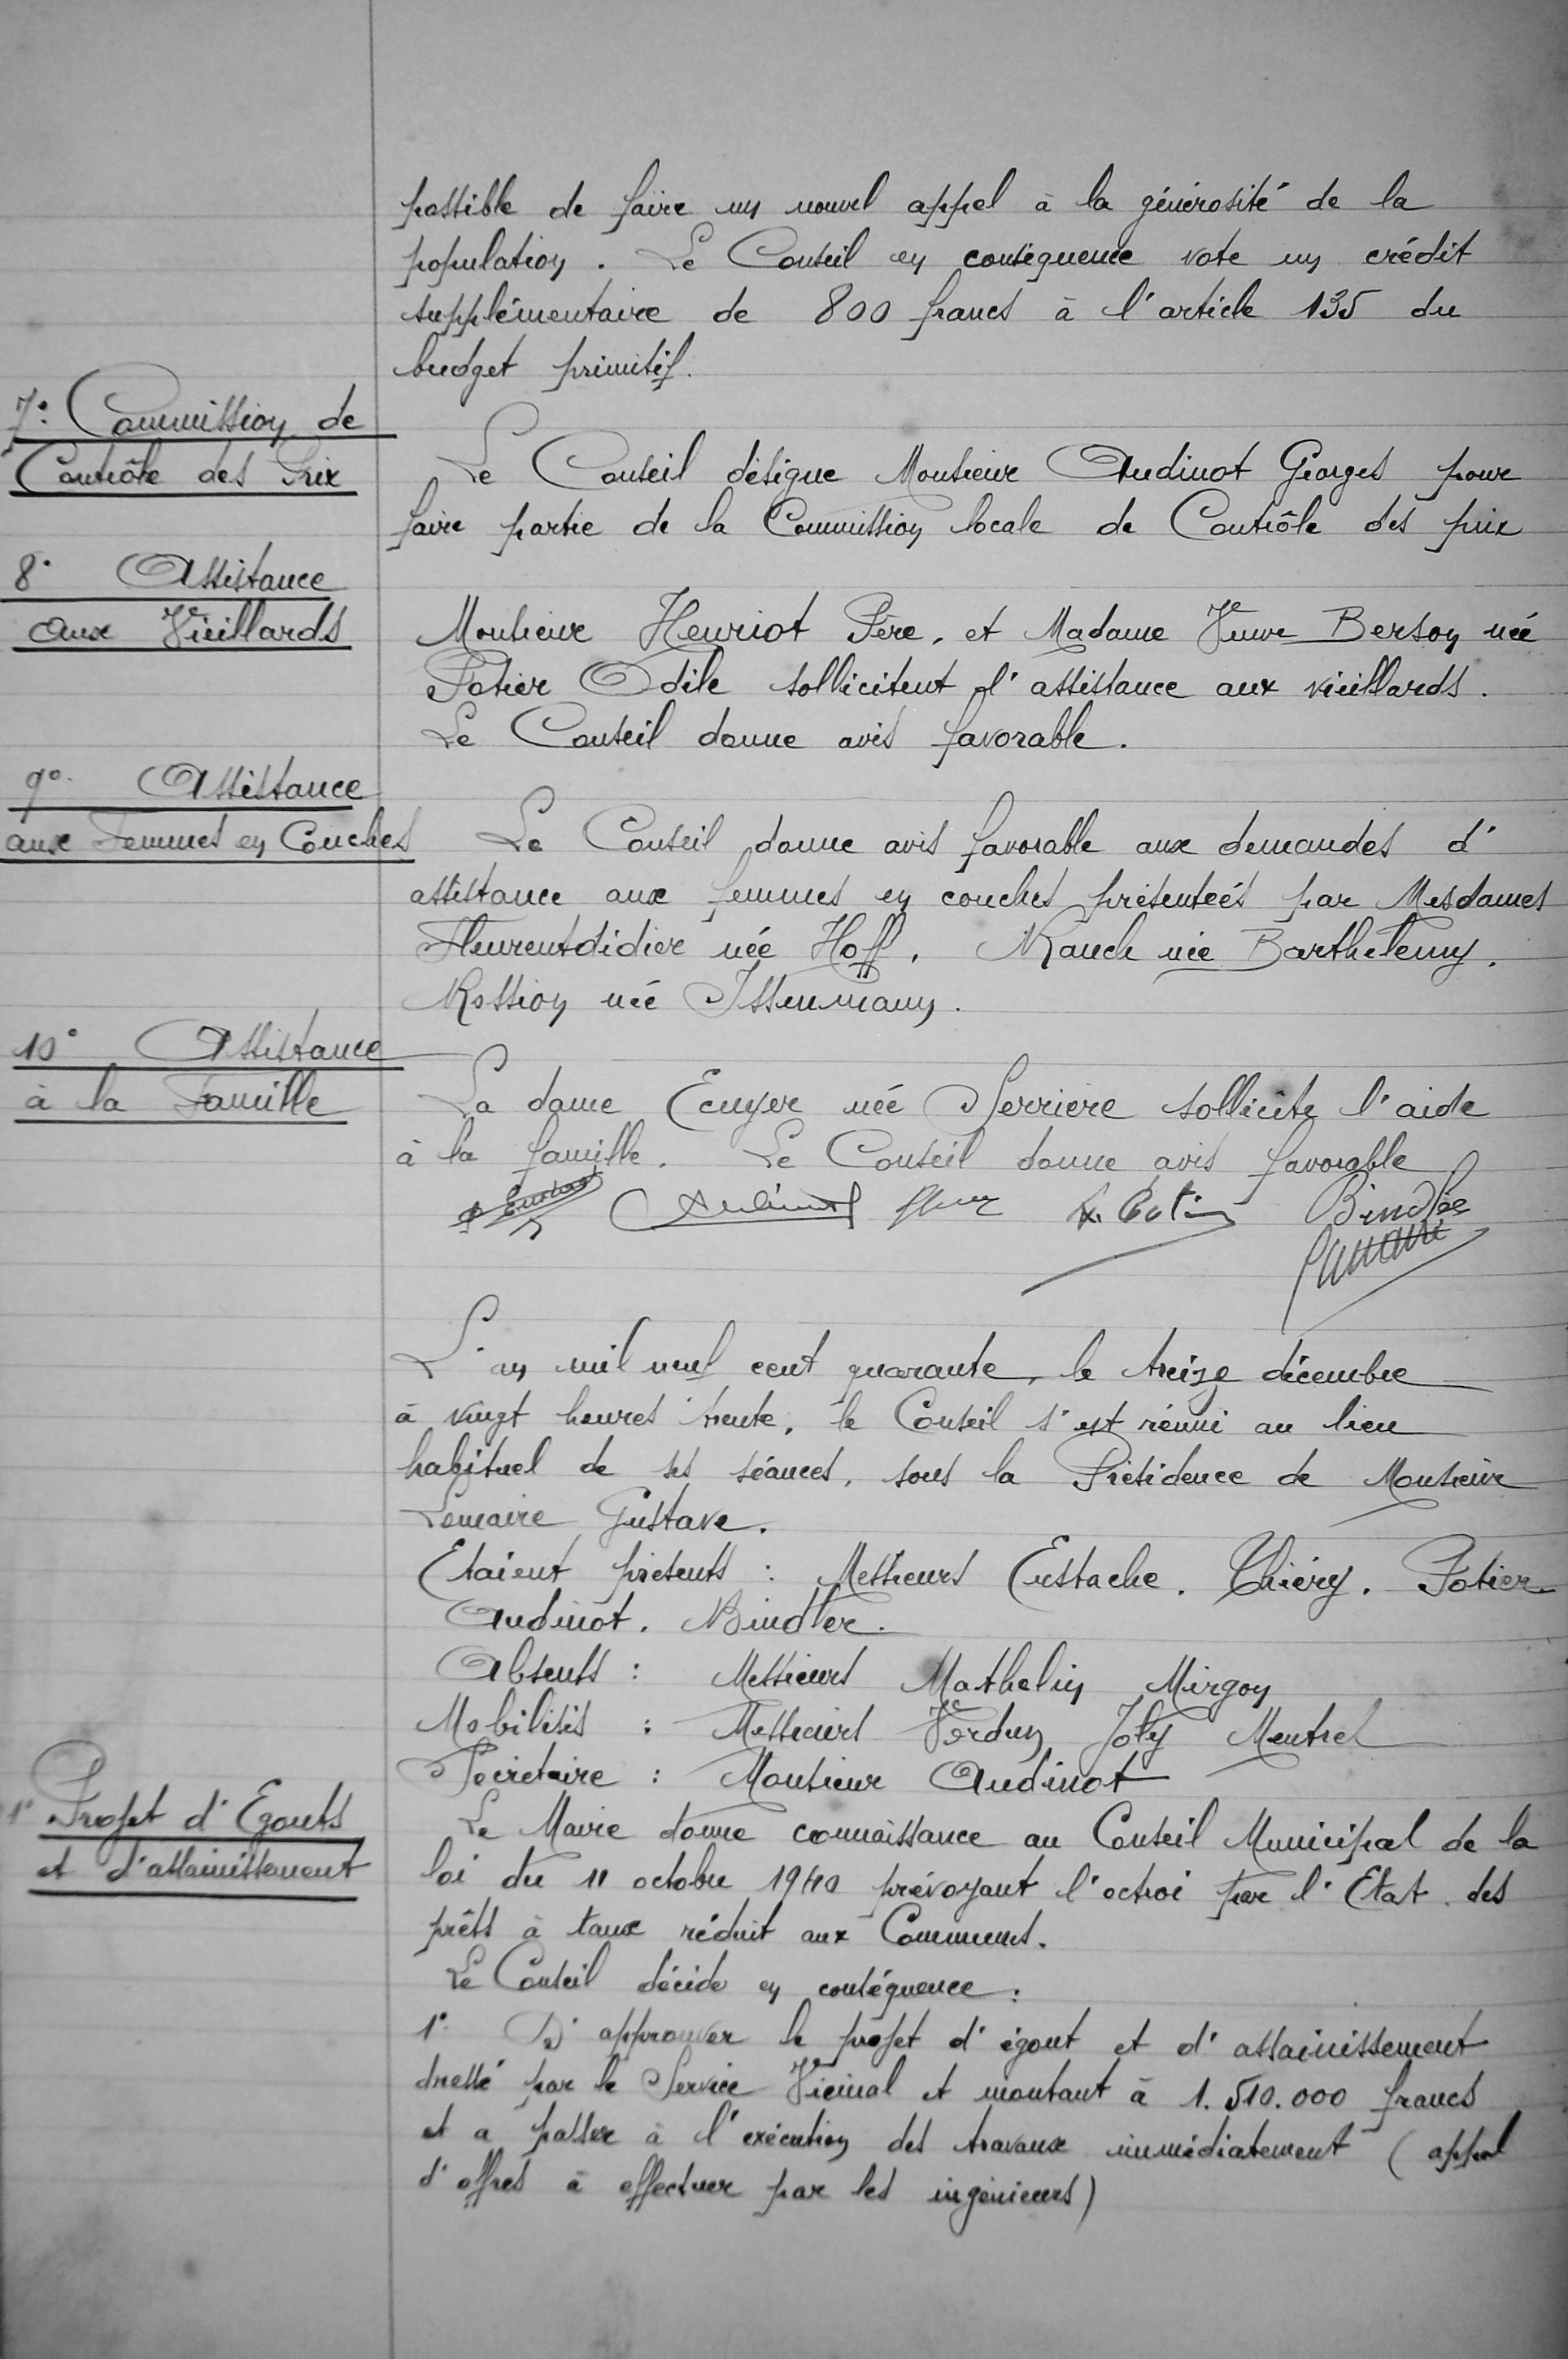 possible de faire un nouvel appel à la générosité de la
population. Le Conseil en conséquence vote un crédit
supplémentaire de 800 francs à l'article 135 du
budget primitif.
7° Commission de
Contrôle des Prix
Le Conseil désigne Monsieur Audinot Georges pour
faire partie de la Commission locale de Contrôle des prix
8° Assistance
aux Vieillards
Monsieur Henriot Père, et Madame Veuve Berson née
Potier Odile sollicitent l'assistance aux vieillards.
Le Conseil donne avis favorable.
9° Assistance
aux Femmes en Couches
Le Conseil donne avis favorable aux demandes d'
assistance aux femmes en couches présentées par Mesdames
Fleurentdidier née Hoff, Rauch née Barthelemy.
Rossion née Issenmann.
10° Assistance
à la Famille
La dame Ecuyer née Serriere sollicite l'aide
à la famille. Le Conseil donne avis favorable
Audinot
Bindler
L'an mil neuf cent quarante, le treize décembre
à vingt heures trente, le Conseil s'est réuni au lieu
habituel de ses séances, sous la Présidence de Monsieur
Lemaire Gustave.
Etaient présents : Messieurs Eustache. Thiéry. Potier
Audinot. Bindler.
Absents : Messieurs Mathelin Mirgon
Mobilisés : Messieurs Verdun Joly Mentrel
Secrétaire : Monsieur Audinot
1° Projet d'Egouts
et d'assainissement
Le Maire donne connaissance au Conseil Municipal de la
loi du 11 octobre 1940 prévoyant l'octroi par l'Etat des
prêts à taux réduit aux Communes.
Le Conseil décide en conséquence :
1° D'approuver le projet d'égout et d'assainissement
dressé par le Service Vicinal et montant à 1.510.000 francs
et a passer à l'exécution des travaux immédiatement (appel
d'offres à effectuer par les ingénieurs)